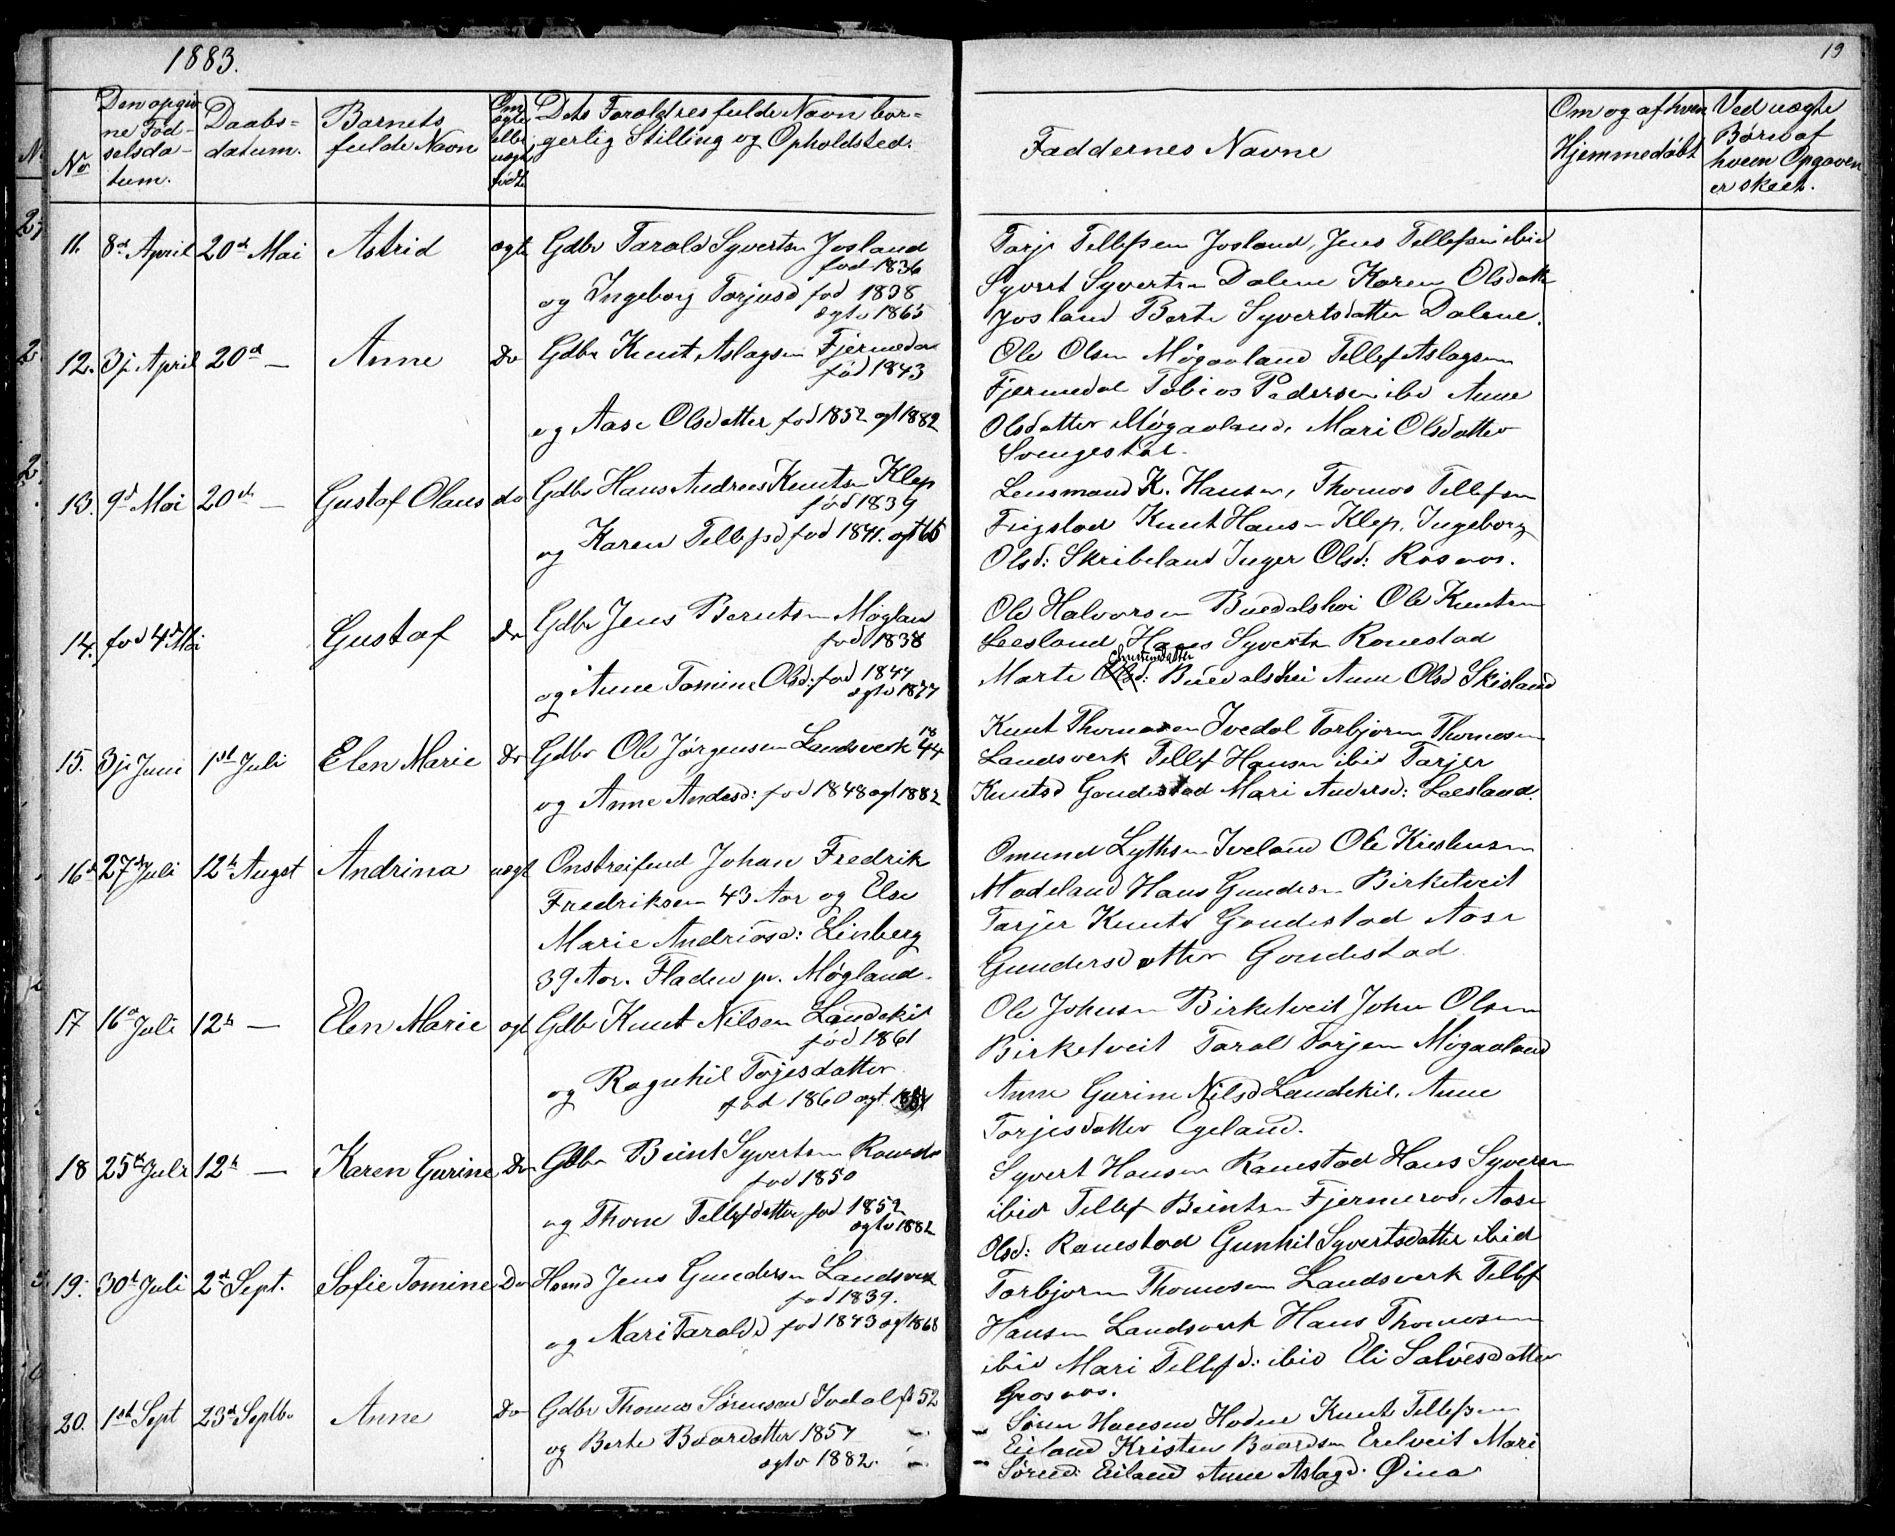 1883.
19
No
Den opgiv
ne Fød-
selsda-
tum.
Daabs-
datum.
Barnets
fulde Navn
Om
ægte
eller
uægte
født
Dets Forældres fulde Navn bor-
gerlig Stilling og Opholdsted.
Faddernes Navne
Om og af hvem
Hjemmedøbt
Ved uægte
Børn af
hvem Opgaven
er skeet.
11. 8d April 20de Mai Astrid ægte Gdbr Tarald Syvertsn Josland
fød 1836
og Ingeborg Torjusd fød 1838
ægtv 1865
Torje Tellefsen Josland, Jens Tellefsen ibid
Syvert Syvertsn Dalene Karen Olsdatte
Josland Berte Syvertsdatter Dalene.
12. 3j April 20de — Anne Do Gdbr Knut Aslagsen Fjermedal
fød 1843
og Aase Olsdatter fod 1852 ægt 1882
Ole Olsen Møgaaland Tellef Aslagsen
Fjermedal Tobias Pedersen ibd Anne
Olsdatter Møgaaland, Mari Olsdatter
Svengestøl.
13. 9d Mai 20de — Gustaf Olaus do Gdbr Hans Andreas Knutsn Klep
fød 1839
og Karen Tellefsd fød 1841. ægt 66
Lensmand K. Hansen, Thomas Tellefsen
Frigstad Knut Hansn Klep, Ingeborg
Olsd: Skribeland Inger Olsd: Rosaas.
14. fød 4de Mai Gustaf Do Gdbr Jens Berntsn Møglan
fød 1838
og Anne Tomine Olsd: fød 1847
ægtv 1877
Ole Halvorsen Buedalshei Ole Knutsen
Leesland, Hans Syvertsn Ronestad
Christensdatter
Marte Olsd: Buedalshei Anne Olsd Skisland
15. 3j Juni 1ste Juli Elen Marie Do Gdbr Ole Jørgensen Landsverk 18
44
og Anne Andesd: fød 1848 ægt 1882
Knut Thomasen Ivedal Torbjørn Thomesen
Landsverk Tellef Hansen ibid Tarjer
Knutsd Gondestad Mari Andersd: Leesland.
16d 27de Juli 12te Augst Andrina uægt Omstreifend Johan Fredrik
Fredriksen 43 Aar og Else
Marie Andriasd: Linberg
39 Aar. Fladen pr. Møgland.
Omund Lythsn Iveland Ole Kristensen
Modeland Hans Gundersn Birketveit
Tarjer Knuts Gondestad Aase
Gundersdatter Gondestad
17 16de Juli 12te — Elen Marie ægt Gdbr Knut Nilsen Landskil
fød 1861
og Ragnhil Torjesdatter
fød 1860 ægt.
Ole Johnsen Birketveit John Olsen
Birketveit Taral Torjesn Møgaaland
Anne Gurine Nilsd Landskil, Anne
Torjesdatter Egeland.
18 25de Juli 12te — Karen Gurine Do Gdbr Beint Syvertsen Ronesta
fød 1850
og Thone Tellefsdatter fød 1852
ægtv 1882
Syvert Hansen Ranestad Hans Syversn
ibid Tellef Beintsn Fjermeros, Aase
Olsd: Ranestad Gunhil Syvertsdatter ibid
19. 30te Juli 2de Sept. Sofie Tomine Do Hsmd Jens Gundersn Landsverk
fød 1839.
og Mari Taraldsd fød 1843 ægt 1868
Torbjørn Thomesen Landsverk Tellef
Hansen Landsverk Hans Thomesen
ibid Mari Tellefsd: ibid Eli Salvesdatter
Grosaas.
20. 1ste Sept 23de Septbr Anne Do Gdbr Thomas Sørensen Ivedal fd 52
og Berte Baardsdatter 1857
ægtv 1882.
Søren Hansen Hodne Knut Tellefsen
Eieland Kristen Baardsn Erelveit Mari
Sørensd: Eieland Anne Aslagsd: Øina